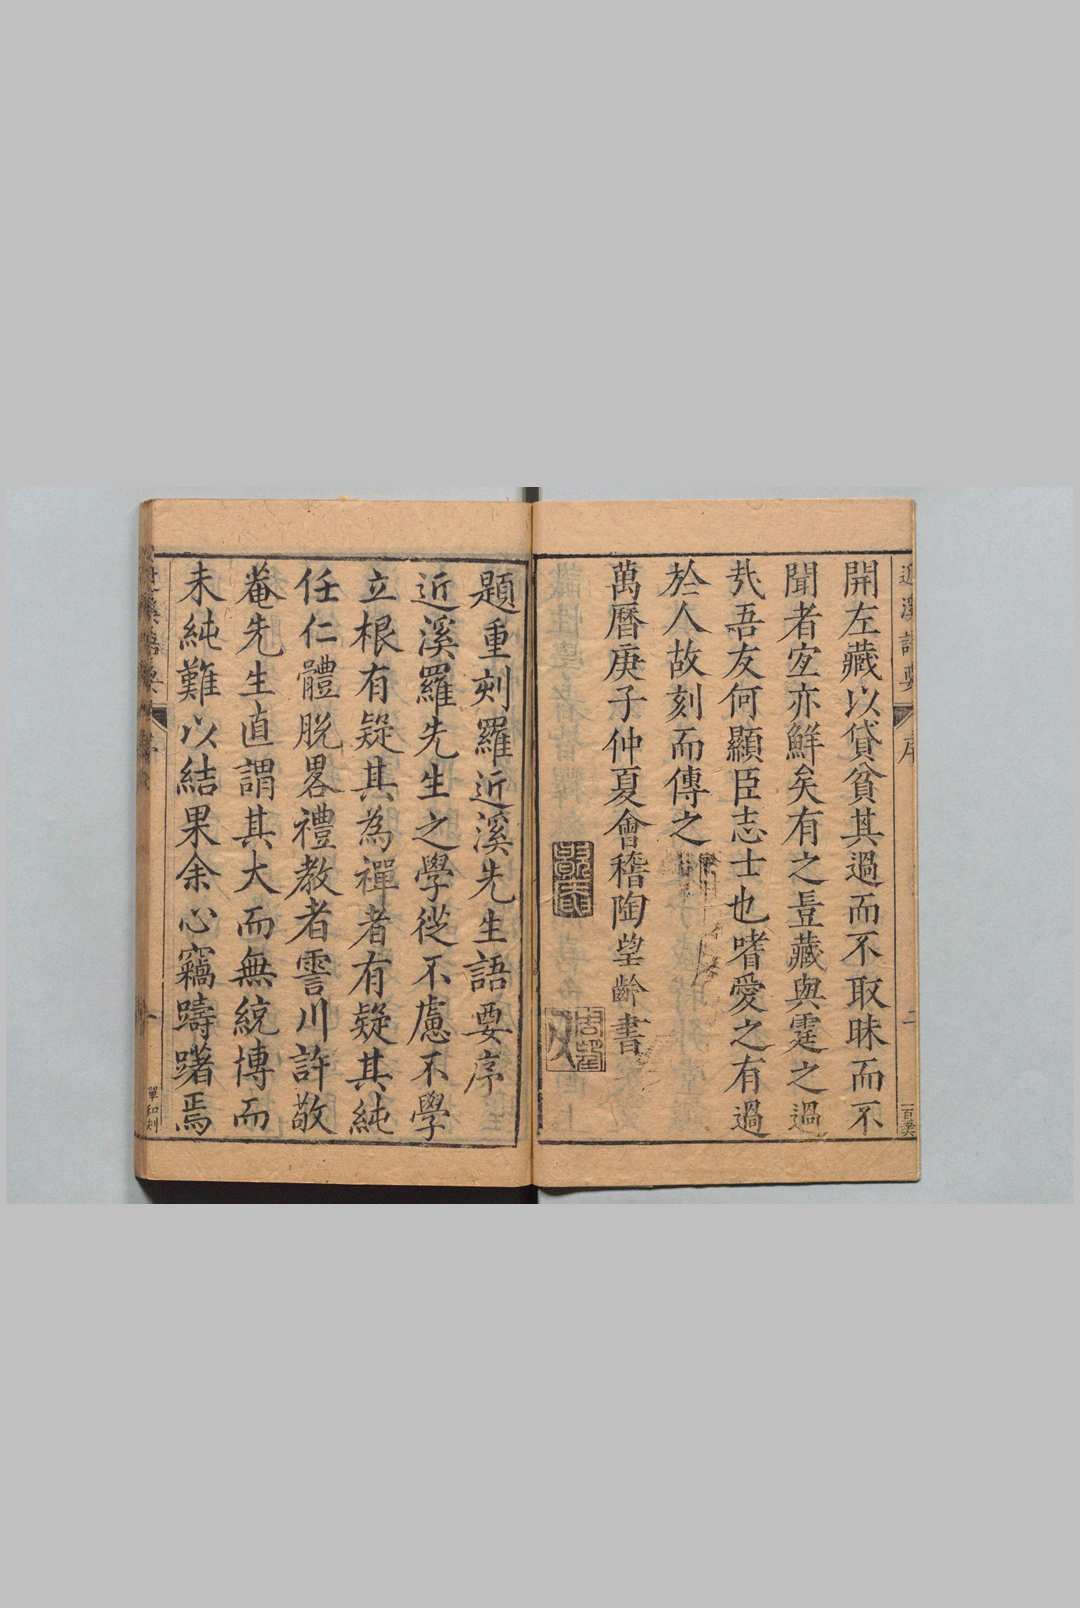 近溪語要 序 二
開左藏以貸貧其過而不取昧而不
聞者宐亦鮮矣有之豈藏與霆之過
㢤吾友何顯臣志士也嗜愛之有過
於人故刻而傳之
萬曆庚子仲夏會稽陶望齡書
題重刻羅近溪先生語要序
近溪羅先生之學從不慮不學
立根有疑其為禪者有疑其純
任仁體脫畧禮教者霅川許敬
菴先生直謂其大而無統博而
未純難以結果余心竊躊躇焉